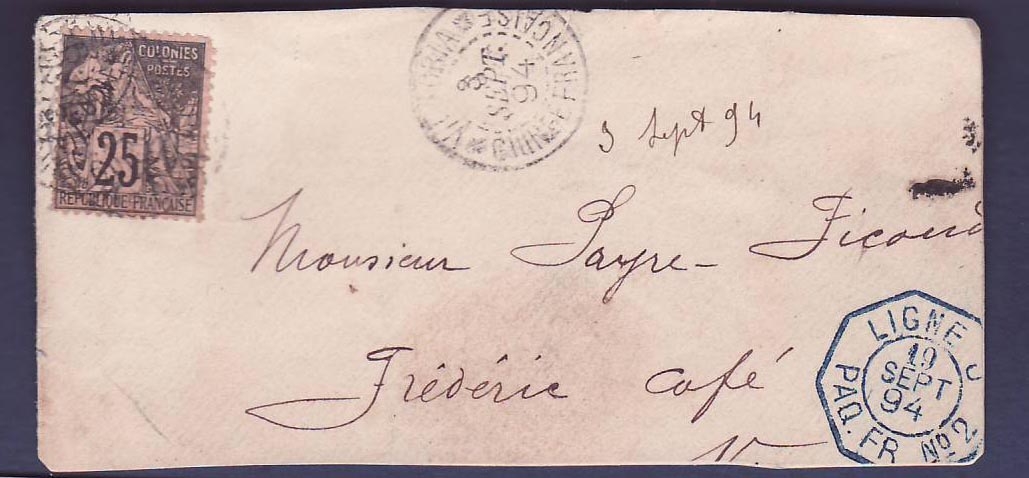 COLONIES
POSTES
25
REPUBLIQUE FRANCAISE
VICTORIA
8
SEPT.
94
GUINEE FRANCAISE
9 Sept 94
Monsieur Payre-Ficoud
Frédéric Café
LIGNE J
19
SEPT
94
PAQ. FR No 2